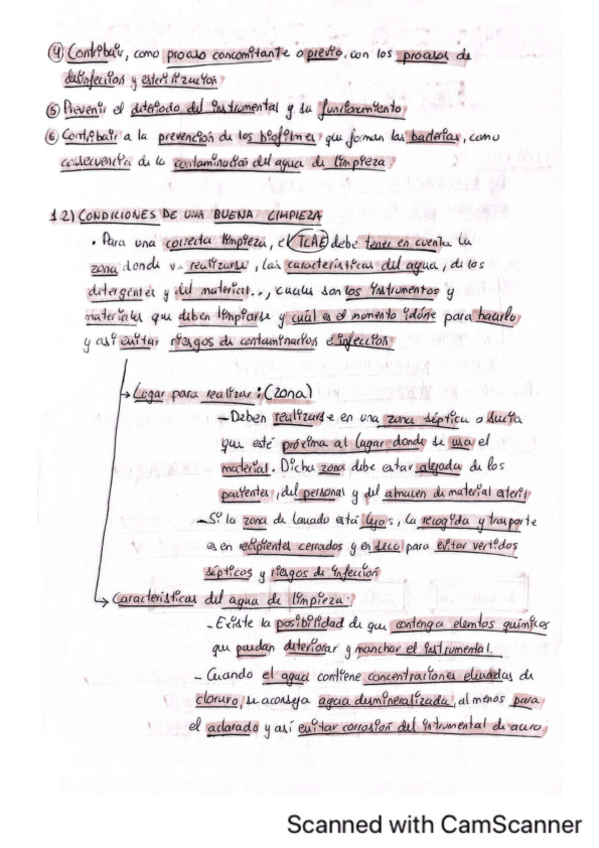 ④ Contribuir, como proceso concomitante o previo, con los procesos de
desinfección y esterilización
⑤ Prevenir el deterioro del instrumental y su funcionamiento
⑥ Contribuir a la prevención de los biofilmes que forman las bacterias, como
consecuencia de la contaminación del agua de limpieza
1.2) CONDICIONES DE UNA BUENA LIMPIEZA
• Para una correcta limpieza, el TCAE debe tener en cuenta la
zona donde va realizarse, las características del agua, de los
detergentes y del material..., cuales son los instrumentos y
materiales que deben limpiarse y cuál es el momento idóneo para hacerlo
y así evitar riesgos de contaminación e infección
→ Lugar para realizar: (zona)
- Deben realizarse en una zona séptica o sucia
que esté próxima al lugar donde se usa el
material. Dicha zona debe estar alejada de los
pacientes, del personal y del almacen de material esteril
- Si la zona de lavado está lejos, la recogida y trasporte
es en recipientes cerrados y en seco para evitar vertidos
sépticos y riesgos de infección
→ Características del agua de limpieza:
- Existe la posibilidad de que contenga elementos químicos
que puedan deteriorar y manchar el instrumental.
- Cuando el agua contiene concentraciones elevadas de
cloruro, se aconseja agua desmineralizada, al menos para
el aclarado y así evitar corrosión del intrumental de acero
Scanned with CamScanner